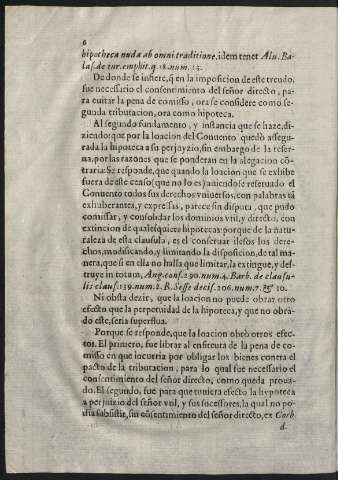 6
hipotheca nuda ab omni traditione, idem tenet Alu. Ba-
lasc. de iur. emphit. q. 18. num. 13.
De donde se infiere, q̃ en la imposicion de este treudo,
fue necessario el consentimiento del señor directo, pa-
ra euitar la pena de comisso, ora se considere como se-
gunda tributacion, ora como hipoteca.
Al segundo fundamento, y instancia que se haze, di-
ziendo: que por la loacion del Conuento quedò assegu-
rada la hipoteca a su perjoyzio, sin embargo de la reser-
ua, por las razones que se ponderan en la alegacion cõ-
traria: Se responde, que quando la loacion que se exhibe
fuera de este censo (que no lo es) auiendose reseruado el
Conuento todos sus derechos vniuersos, con palabras tã
exhuberantes, y expressas, parece sin disputa, que pudo
comissar, y consolidar los dominios vtil, y directo, con
extincion de qualesquiere hipotecas: porque de la natu-
raleza de esta clausula, es el conseruar ilesos los dere-
chos, modificando, y limitando la disposicion, de tal ma-
nera, que si en ella no halla que limitar, la extingue, y des-
truye in totum, Aug. cons. 290. num. 4. Barb. de clausu-
lis claus. 139. num. 2. R. Sesse decis. 206. num. 7. & 10.
Ni obsta dezir, que la loacion no puede obrar otro
efecto que la perpetuidad de la hipoteca, y que no obrã-
do este, seria superflua.
Porque se responde, que la loacion obrò otros efec-
tos. El primero, fue librar al enfiteuta de la pena de co-
misso en que incurria por obligar los bienes contra el
pacto de la tributacion, para lo qual fue necessario el
consentimiento del señor directo, como queda proua-
do. El segundo, fue para que tuuiera efecto la hypoteca
a perjuizio del señor vtil, y sus sucessores, la qual no po-
dia subsistir, sin cõsentimiento del señor directo, ex Corb.
d.